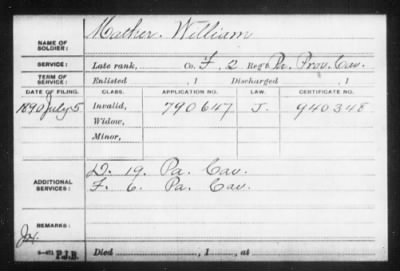 NAME OF SOLDIER: Mather. William
SERVICE: Late rank, Co. F. 2 Reg't Pa. Prov. Cav.
TERM OF SERVICE: Enlisted , 1 Discharged , 1
DATE OF FILING. CLASS. APPLICATION NO. LAW. CERTIFICATE NO.
1890 July 5 Invalid, 790647 J. 940348
Widow,
Minor,
ADDITIONAL SERVICES: D. 19. Pa. Cav.
F. 6. Pa. Cav.
REMARKS:
P.J.B.
Died , 1 , at